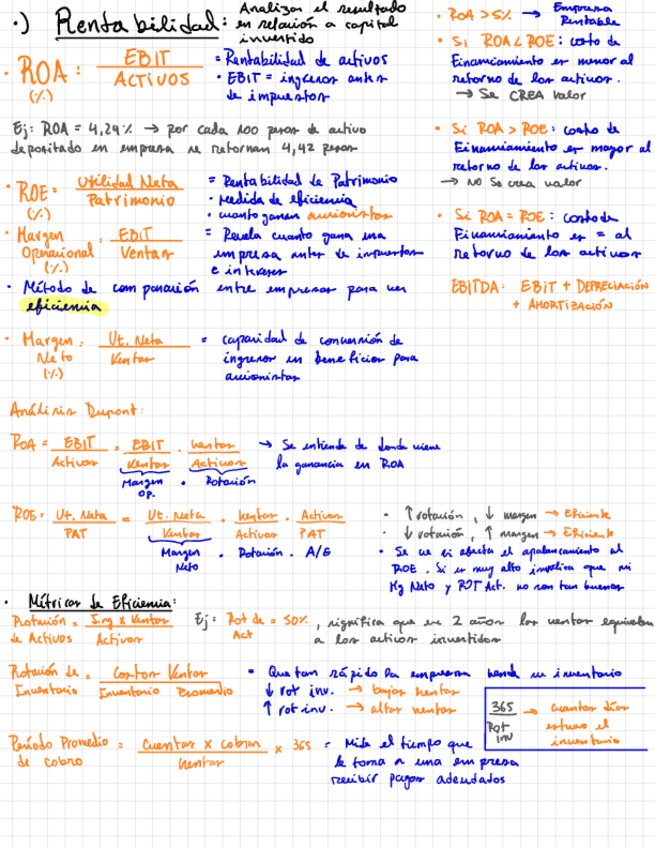 ·) Rentabilidad: Analizan el resultado
en relación a capital
invertido
· ROA: EBIT / ACTIVOS
(%)
= Rentabilidad de activos
· EBIT = ingresos antes
de impuestos
Ej: ROA = 4,24% → por cada 100 pesos de activo
depositado en empresa se retornan 4,42 pesos
· ROE = Utilidad Neta / Patrimonio
(%)
= Rentabilidad de Patrimonio
· Medida de eficiencia
· cuanto ganan accionistas
· Margen Operacional = EBIT / Ventas
(%)
= Revela cuanto gana una
empresa antes de impuestos
e intereses
· Método de comparación entre empresas para ver
eficiencia
· Margen Neto = Ut. Neta / Ventas
(%)
= capacidad de conversión de
ingresos en beneficios para
accionistas
· ROA > 5% → Empresa
Rentable
· Si ROA < ROE: costo de
Financiamiento es menor al
retorno de los activos.
→ Se CREA valor
· Si ROA > ROE: costo de
Financiamiento es mayor al
retorno de los activos.
→ NO Se crea valor
· Si ROA = ROE: costo de
Financiamiento es = al
retorno de los activos
EBITDA: EBIT + DEPRECIACIÓN
+ AMORTIZACIÓN
Análisis Dupont:
ROA = EBIT / Activos = EBIT / Ventas · Ventas / Activos → Se entiende de donde viene
la ganancia en ROA
Margen Op. · Rotación
ROE = Ut. Neta / PAT = Ut. Neta / Ventas · Ventas / Activos · Activos / PAT
Margen Neto · Rotación · A/E
· ↑ rotación, ↓ margen → Eficiente
· ↓ rotación, ↑ margen → Eficiente
· Se ve si afecta el apalancamiento al
ROE. Si es muy alto implica que mi
Mg Neto y ROT Act. no son tan buenos
· Métricas de Eficiencia:
Rotación de Activos = Ing x Ventas / Activos
Ej: Rot de Act = 50%, significa que en 2 años las ventas equivalen
a los activos invertidos
Rotación de Inventario = Costos Ventas / Inventario Promedio
= Que tan rápido la empresa vende su inventario
↓ rot inv. → bajas ventas
↑ rot inv. → altas ventas
365 / Rot inv → cuantos días
estuvo el
inventario
Período Promedio de cobro = Cuentas x cobrar / Ventas x 365
= Mide el tiempo que
le toma a una empresa
recibir pagos adeudados